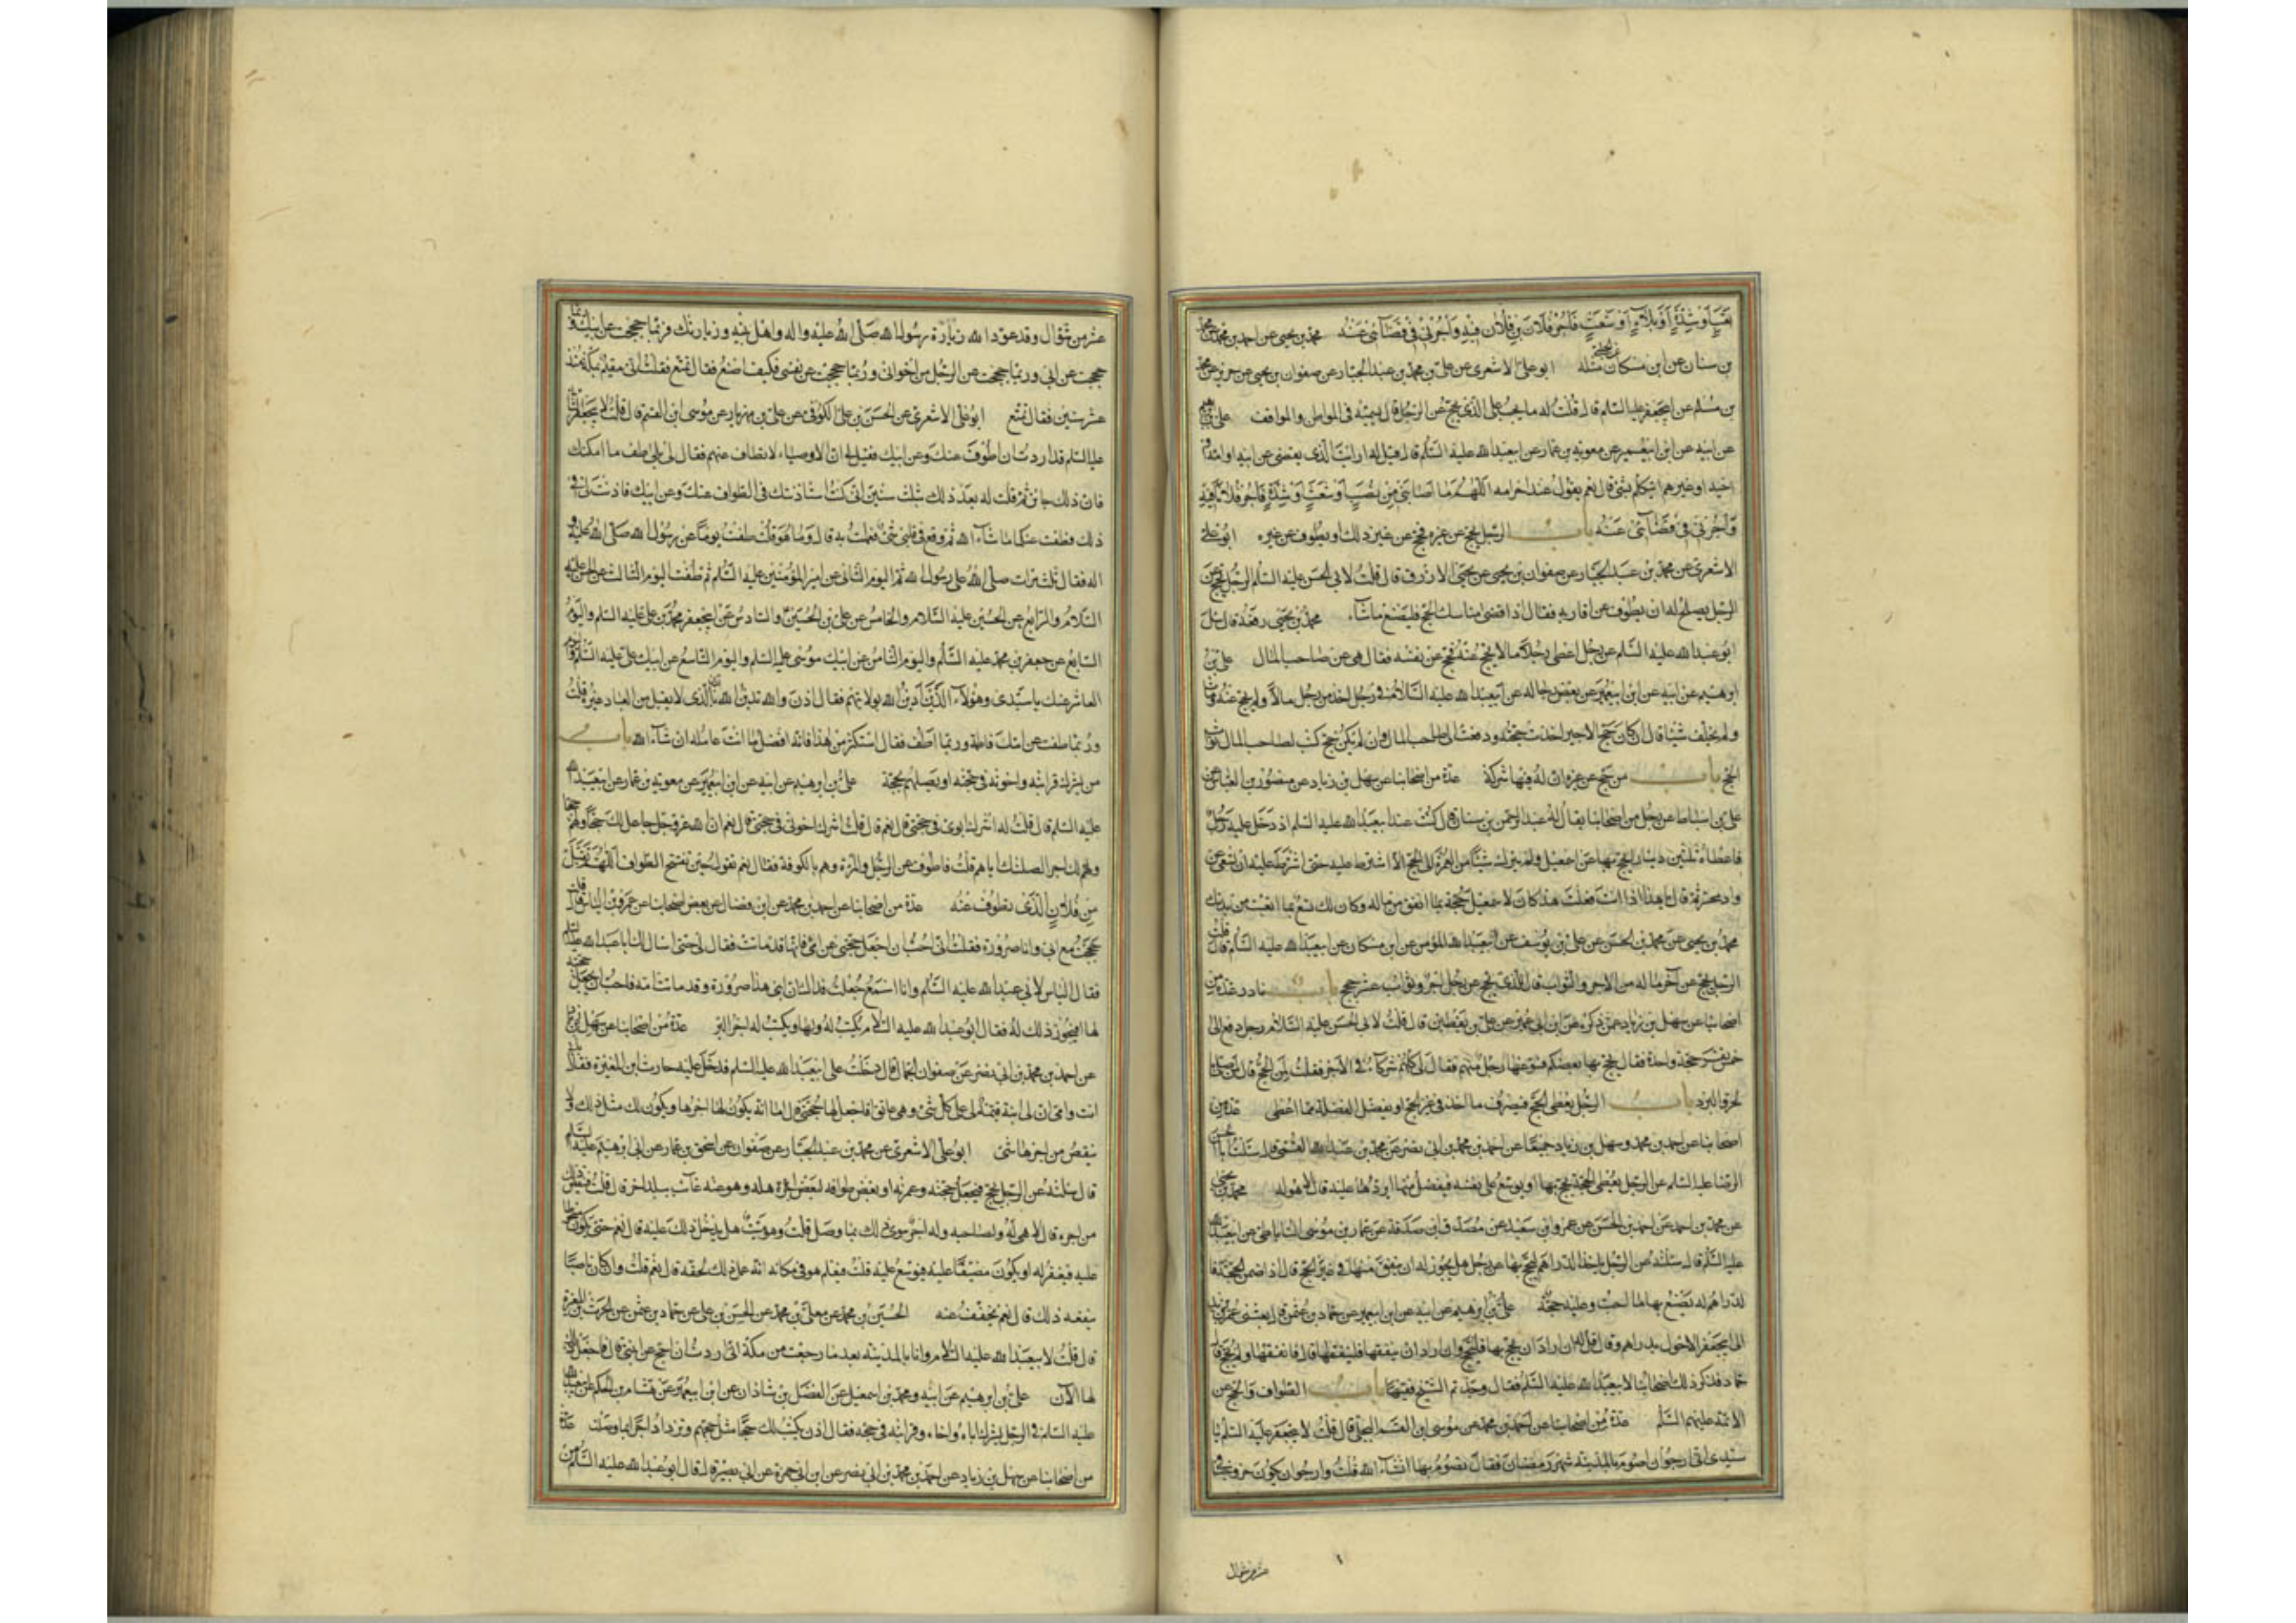 تعب أو شدة أو بلاء أو شعث فأجر فلان بن فلان فيه وأجرني في قضائي عنه محمد بن يحيى عن احمد بن محمد عن محمد
بن سنان عن ابن مسكان عن الحلبي مثله ابو علي الاشعري عن محمد بن عبد الجبار عن صفوان بن يحيى عن حريز عن محمد
بن مسلم عن ابي جعفر عليه السلام قال قلت له ما يجب على الذي يحج عن الرجل قال يسميه في المواطن والمواقف علي بن ابرهيم
عن ابيه عن ابن ابي عمير عن معوية بن عمار عن ابي عبد الله عليه السلم قال قيل له ارايت الذي يقضي عن ابيه او امه او
اخيه او غيرهم ايتكلم بشئ قال نعم يقول عند احرامه اللهم ما اصابني من نصب او شعث او شدة فأجر فلانا فيه
وأجرني في قضائي عنه باب الرجل يحج عن غيره فحج عن غير ذلك او يطوف عن غيره ابو علي
الاشعري عن محمد بن عبد الجبار عن صفوان بن يحيى عن يحيى الازرق قال قلت لابي الحسن عليه السلم الرجل يحج عن
الرجل يصلح له ان يطوف عن اقاربه فقال اذا قضى مناسك الحج فليصنع ما شاء محمد بن يحيى رفعه قال سئل
ابو عبد الله عليه السلم عن رجل اعطى رجلا مالا يحج عنه فحج عن نفسه فقال هي عن صاحب المال علي بن
ابرهيم عن ابيه عن ابن ابي عمير عن بعض رجاله عن ابي عبد الله عليه السلام في رجل اخذ من رجل مالا ولم يحج عنه ومات
ولم يخلف شيئا قال ان كان حج الاجير اخذت حجته ودفعت الى صاحب المال وان لم يكن حج كتب لصاحب المال ثواب
الحج باب من حج عن غيره ان له فيها شركة عدة من اصحابنا عن سهل بن زياد عن منصور بن العباس عن
علي بن اسباط عن رجل من اصحابنا يقال له عبد الرحمن بن سنان قال كنت عند ابي عبد الله عليه السلم اذ دخل عليه رجل
فاعطاه ثلثين دينارا يحج بها عن اسمعيل ولم يترك شيئا من العمرة الى الحج الا اشترط عليه حتى اشترط عليه ان يسعى عن
وادي محسر ثم قال يا هذا اذا انت فعلت هذا كان لاسمعيل حجة بما انفق من ماله وكان لك تسع بما اتعبت من بدنك
محمد بن يحيى عن محمد بن الحسن عن علي بن يوسف عن ابي عبد الله المؤمن عن ابن مسكان عن ابي عبد الله عليه السلم قال قلت
الرجل يحج عن آخر ما له من الاجر والثواب قال للذي يحج عن رجل اجر وثواب عشر حجج باب نادر عدة من
اصحابنا عن سهل بن زياد عمن ذكره عن ابن ابي عمير عن علي بن يقطين قال قلت لابي الحسن عليه السلام رجل دفع الى
خمس نفر حجة واحدة فقال يحج بها بعضكم فسوغها رجل منهم فقال لي كلهم شركاء في الاجر فقلت لمن الحج قال لمن صلى
الحر والبرد باب الرجل يعطى الحج فيصرف ما اخذ في غير الحج او يفضل الفضلة مما اعطى عدة من
اصحابنا عن احمد بن محمد وسهل بن زياد جميعا عن احمد بن محمد بن ابي نصر عن محمد بن عبد الله القمي قال سئلت ابا الحسن
الرضا عليه السلم عن الرجل يعطى الحجة يحج بها او يوسع على نفسه فيفضل منها ايردها عليه قال لا هو له محمد بن يحيى
عن محمد بن احمد عن احمد بن الحسن عن عمرو ابن سعيد عن مصدق ابن صدقة عن عمار بن موسى الساباطي عن ابي عبد الله
عليه السلم قال سئلته عن الرجل ياخذ الدراهم ليحج بها عن رجل هل يجوز له ان ينفق منها في غير الحج قال اذا ضمن الحجة فا
لدراهم له يصنع بها ما احب وعليه حجة علي بن ابرهيم عن ابيه عن ابن ابي عمير عن حماد بن عثمن قال بعثني عمر بن يزيد
الى ابي جعفر الاحول بدراهم وقال قل له ان اراد ان يحج بها فليحج وان اراد ان ينفقها فلينفقها قال فانفقها ولم يحج قا
حماد فذكر ذلك اصحابنا لابي عبد الله عليه السلم فقال وجدتم الشيخ فقيها باب الطواف والحج عن
الائمة عليهم السلم عدة من اصحابنا عن احمد بن محمد عن موسى ابن القسم البجلي قال قلت لابي جعفر عليه السلم يا
سيدي اني ارجو ان اصوم بالمدينة شهر رمضان فقال تصوم بها انشاء الله قلت وارجو ان يكون خروجنا في
عشر من شوال
عشر من شوال وقد عود الله زيارة رسول الله صلى الله عليه واله واهل بيته وزيارتك فربما حججت عن ابيك وربما
حججت عن ابي وربما حججت عن الرجل من اخواني وربما حججت عن نفسي فكيف اصنع فقال تمتع فقلت اني مقيم بمكة منذ
عشر سنين فقال تمتع ابو علي الاشعري عن الحسن بن علي الكوفي عن علي بن مهزيار عن موسى ابن القسم قال قلت لابي جعفر الثاني
عليه السلم قد اردت ان اطوف عنك وعن ابيك فقيل لي ان الاوصياء لا يطاف عنهم فقال لي بلى طف ما امكنك
فان ذلك جائز ثم قلت له بعد ذلك بثلث سنين اني كنت استاذنتك في الطواف عنك وعن ابيك فاذنت لي في
ذلك فطفت عنكما ما شاء الله ثم وقع في قلبي شئ فعملت به قال وما هو قلت طفت يوما عن رسول الله صلى الله عليه و
اله فقال ثلث مرات صلى الله على رسول الله ثم اليوم الثاني عن امير المؤمنين عليه السلم ثم طفت اليوم الثالث عن الحسن عليه
السلام والرابع عن الحسين عليه السلام والخامس عن علي بن الحسين والسادس عن ابي جعفر محمد بن علي عليه السلم واليوم
السابع عن جعفر بن محمد عليه السلم واليوم الثامن عن ابيك موسى عليه السلم واليوم التاسع عن ابيك علي عليه السلم واليوم
العاشر عنك يا سيدي وهؤلاء الذين ادين الله بولايتهم فقال اذن والله تدين الله بالدين الذي لا يقبل من العباد غيره قلت
وربما طفت عن امك فاطمة وربما لم اطف فقال استكثر من هذا فانه افضل ما انت عامله ان شاء الله باب
من يشرك قرابته واخوته في حجته او يصلهم بحجة علي بن ابرهيم عن ابيه عن ابن ابي عمير عن معوية بن عمار عن ابي عبد الله
عليه السلم قال قلت له اشرك ابوي في حجتي قال نعم قال قلت اشرك اخوتي في حجتي قال نعم ان الله عز وجل جاعل لك حجا ولهم حجا
ولك اجر لصلتك اياهم قلت فاطوف عن الرجل والمراة وهم بالكوفة فقال نعم تقول حين تفتتح الطواف اللهم تقبل
من فلان الذي تطوف عنه عدة من اصحابنا عن احمد بن محمد عن ابن فضال عن بعض اصحابنا عن عمرو بن الياس قال
حججت مع ابي وانا صرورة فقلت اني احب ان اجعل حجتي عن امي فانها قد ماتت فقال لي حتى اسال لك ابا عبد الله عليه السلم
فقال الياس لابي عبد الله عليه السلم وانا اسمع جعلت فداك ان ابني هذا صرورة وقد ماتت امه فاحب ان يجعل حجته
لها افيجوز ذلك له فقال ابو عبد الله عليه السلام يكتب له ولها ويكتب له اجر البر عدة من اصحابنا عن سهل بن زياد
عن احمد بن محمد بن ابي نصر عن صفوان الجمال قال دخلت على ابي عبد الله عليه السلم فدخل عليه حارث ابن المغيرة فقال بابي
انت وامي ان لي ابنة قيمة لي على كل شئ وهي عاتق افاجعل لها حجتي قال اما انه يكون لها اجرها ويكون لك مثل ذلك ولا
ينقص من اجرها شئ ابو علي الاشعري عن محمد بن عبد الجبار عن صفوان عن اسحق بن عمار عن ابي ابرهيم عليه السلم
قال سئلته عن الرجل يحج فيجعل حجته وعمرته او بعض طوافه لبعض اهله وهو عنه غائب ببلد اخر قال قلت فينقص ذلك
من اجره قال لا هي له ولصاحبه وله اجر سوى ذلك بما وصل قلت وهو ميت هل يدخل ذلك عليه قال نعم حتى يكون مسخوطا
عليه فيغفر له او يكون مضيقا عليه فيوسع عليه قلت فيعلم هو في مكانه انه عمل ذلك لحقه قال نعم قلت وان كان ناصبا
ينفعه ذلك قال نعم يخفف عنه الحسين بن محمد عن معلى بن محمد عن الحسن بن علي عن حماد بن عثمن عن الحرث بن المغيرة
قال قلت لابي عبد الله عليه السلام وانا بالمدينة بعد ما رجعت من مكة اني اردت ان احج عن ابنتي قال فاجعل ذلك
لها الآن علي بن ابرهيم عن ابيه ومحمد بن اسمعيل عن الفضل بن شاذان عن ابن ابي عمير عن هشام بن الحكم عن ابي عبد الله
عليه السلم في الرجل يشرك اباه واخاه وقرابته في حجه فقال اذن يكتب لك حجا مثل حجهم وتزداد اجرا بما وصلت عدة
من اصحابنا عن سهل بن زياد عن احمد بن محمد بن ابي نصر عن ابن ابي حمزة عن ابي بصير قال قال ابو عبد الله عليه السلم من